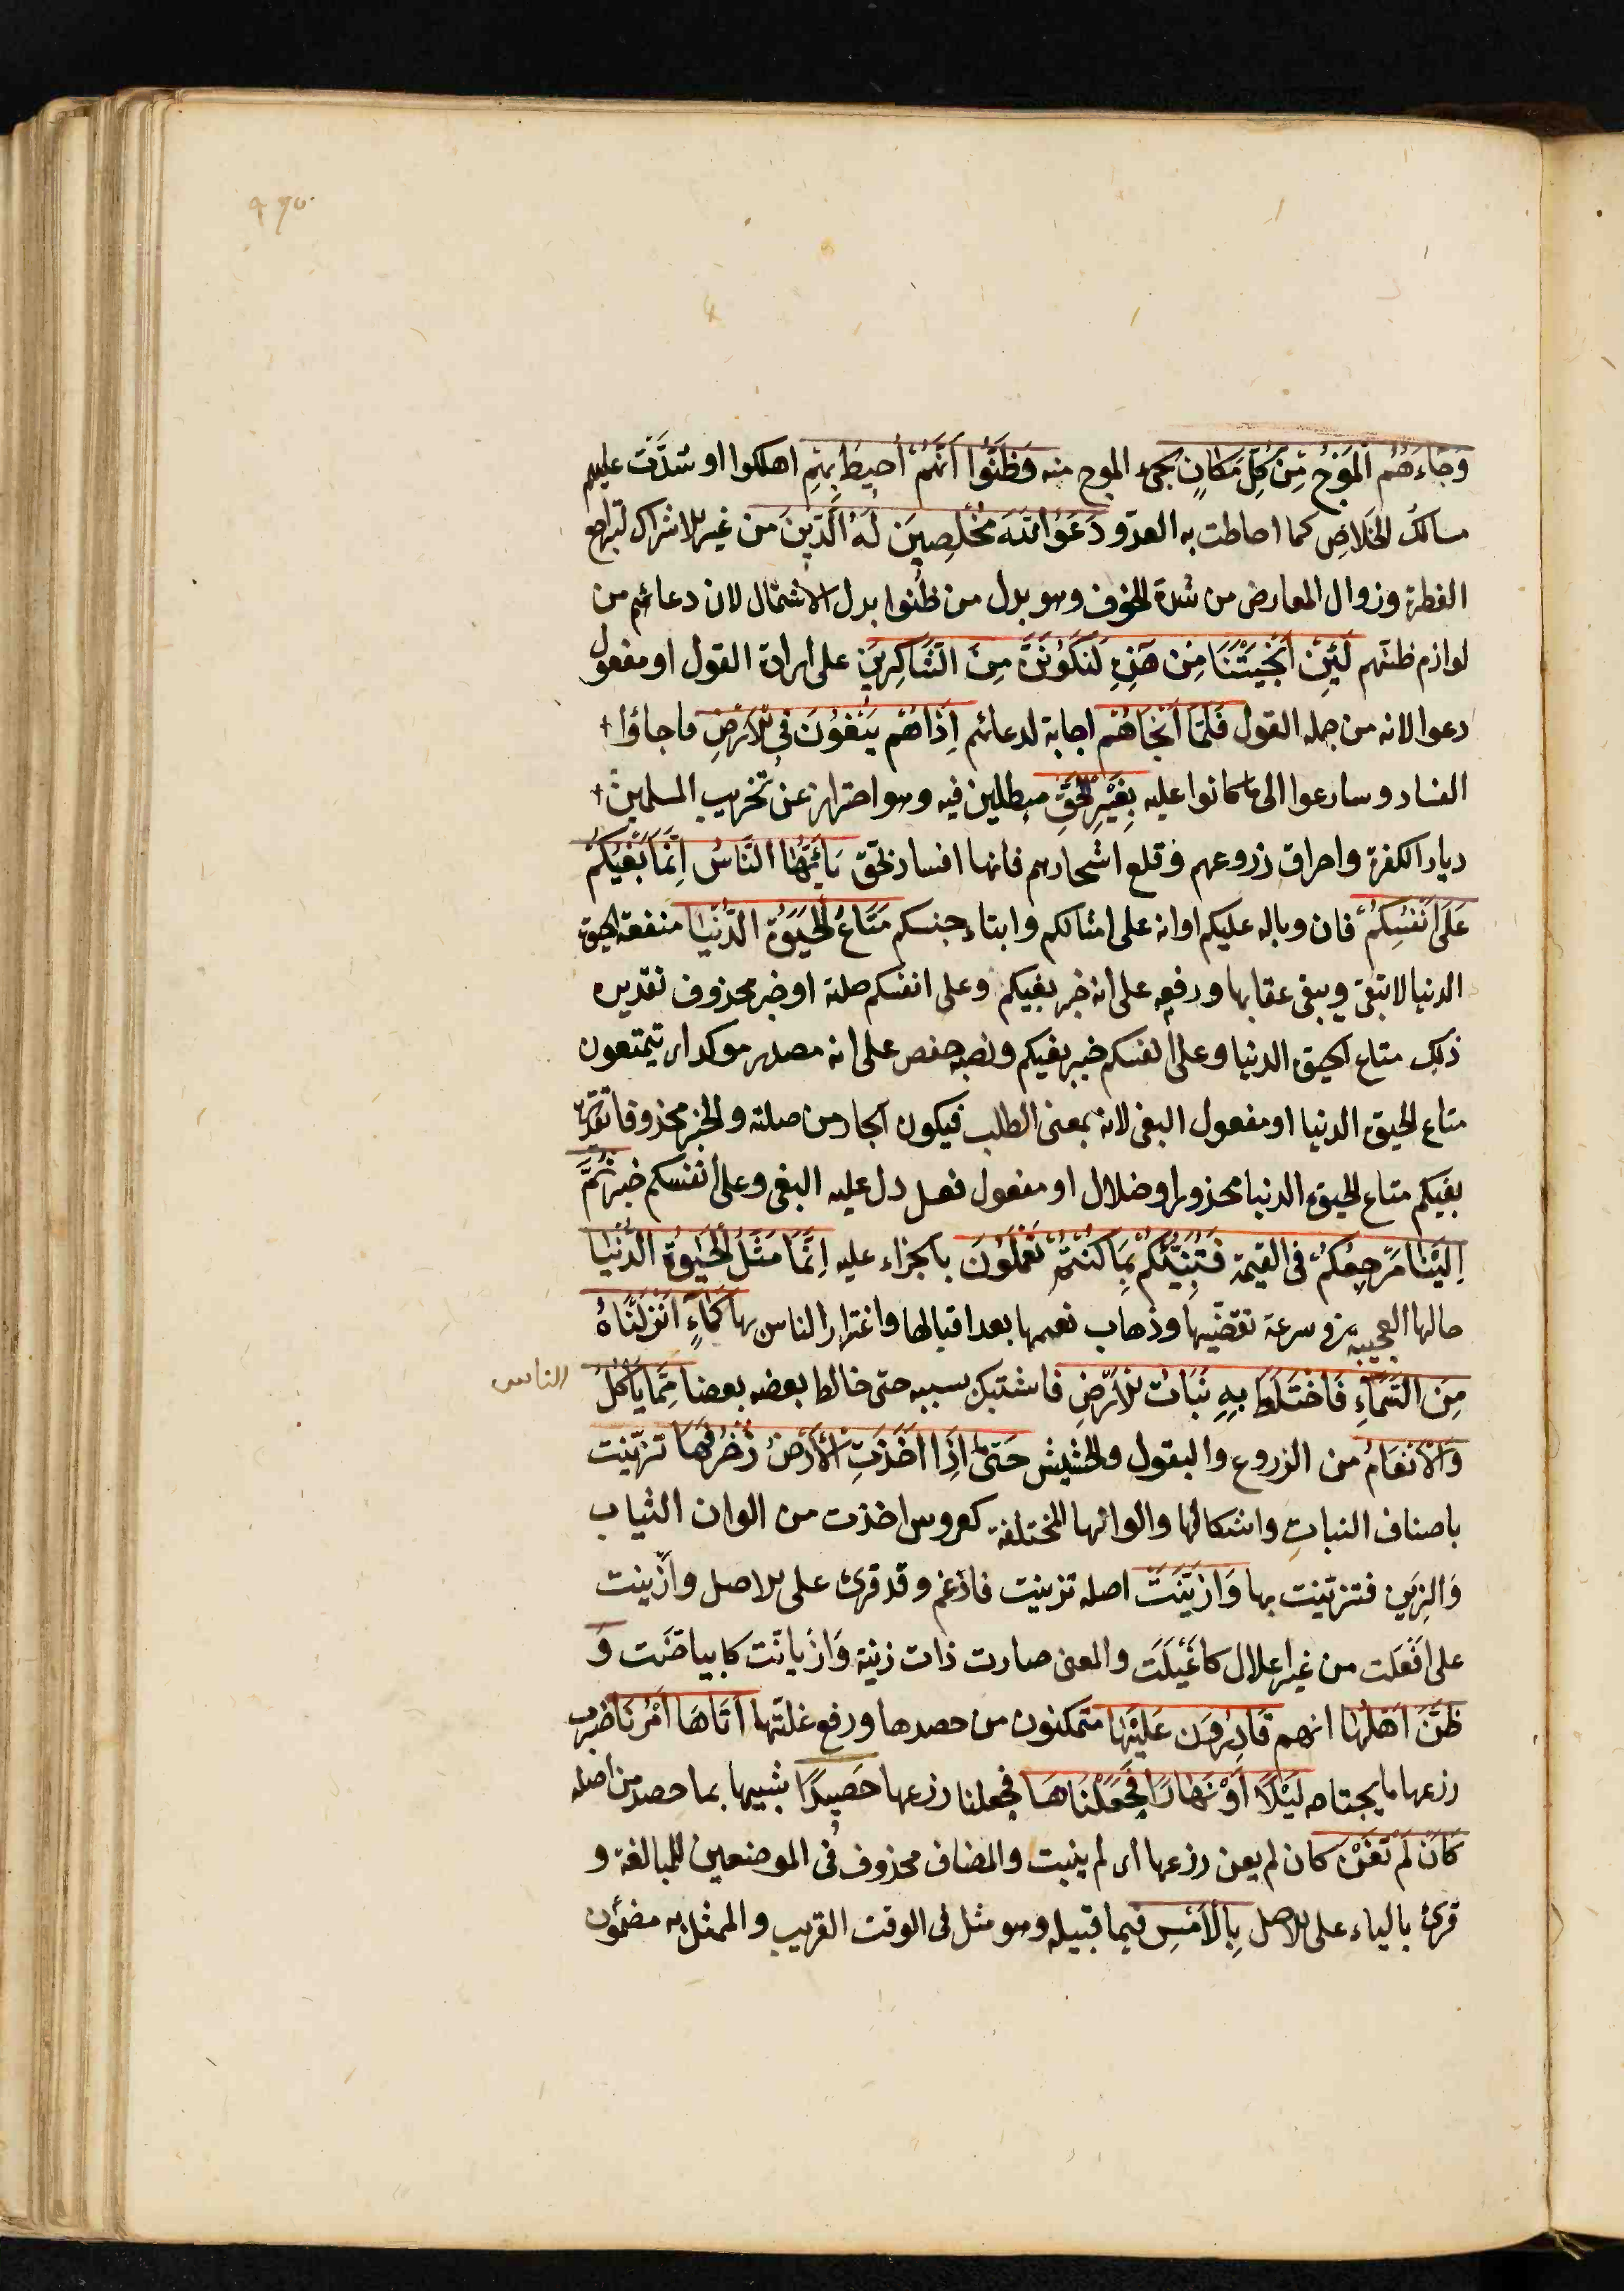 وَجَاءَهُمُ الْمَوْجُ مِنْ كُلِّ مَكَانٍ يجئ الموج منه وَظَنُّوا أَنَّهُمْ أُحِيطَ بِهِمْ اهلكوا او سُدَّت عليهم
مسالك الخلاصِ كما احاطت به العدوّ دَعَوُا اللّٰهَ مُخْلِصِينَ لَهُ الدِّينَ من غير الاشراك لتراجع
الفطرة وزوال المعارض من شدة الخوف وهو بدل من ظنوا بدل الاشتمال لان دعائهم من
لوازم ظنّهم لَئِنْ أَنْجَيْتَنَا مِنْ هَذِهِ لَنَكُوْنَنَّ مِنَ الشَّاكِرِينَ على ارادة القول او مفعول
دعوا لانه من جمله القول فَلَمَّا أَنْجَاهُمْ اجابة لدعائهم إِذَا هُمْ يَبْغُوْنَ فِي الْأَرْضِ فاجاؤا
الفساد وسارعوا الى ما كانوا عليه بِغَيْرِ الْحَقِّ مبطلين فيه وهو احتراز عن تخريب المسلمين
ديار الكفرة واحراق زروعهم وقلع اشجارهم فانها افساد بحقّ يَا أَيُّهَا النَّاسُ إِنَّمَا بَغْيُكُمْ
عَلَى أَنْفُسِكُمْ فان وباله عليكم او انه على امثالكم وابناء جنسكم مَتَاعُ الْحَيٰوةِ الدُّنْيَا منفعة الحيوة
الدنيا لا تبقى ويبقى عقابها ورفعه على انه خبر بغيكم وعلى انفسكم صلته او خبر محذوف تقديره
ذلك متاع الحيوة الدنيا وعلى انفسكم خبر بغيكم ونصبه حفص على انه مصدر موكد اى تتمتعون
متاع الحيوة الدنيا او مفعول البغى لانه بمعنى الطلب فيكون الجار من صلته والخبر محذوفا تقديره
بغيكم متاع الحيوة الدنيا محذور او ضلال او مفعول فعل دل عليه البغى وعلى أنفسكم خبره ثُمَّ
إِلَيْنَا مَرْجِعُكُمْ فى القيمة فَنُنَبِّئُكُمْ بِمَا كُنْتُمْ تَعْمَلُوْنَ بالجزاء عليه إِنَّمَا مَثَلُ الْحَيٰوةِ الدُّنْيَا
حالها العجيبة فى سرعة تقضّيها وذهاب نعيمها بعد اقبالها واغترار الناس بها كَمَاءٍ أَنْزَلْنَاهُ
مِنَ السَّمَاءِ فَاخْتَلَطَ بِهِ نَبَاتُ الْأَرْضِ فاشتبك بسببه حتى خالط بعضه بعضا مِمَّا يَأْكُلُ
الناس
وَالْأَنْعَامُ من الزروع والبقول والحشيش حَتَّى إِذَا أَخَذَتِ الْأَرْضُ زُخْرُفَهَا تزيّنت
باصناف النباتِ واشكالها والوانها المختلفة كعروس اخذت من الوان الثياب
وَالزِين فتزيّنت بها وَازَّيَّنَتْ اصله تزينت فاذغم وقد قرئ على الاصل وأزْينت
على افعَلت من غير اعلال كاغْيَلَت والمعنى صارت ذات زينة وَازْيانّت كابياضّت وَ
ظَنَّ أَهْلُهَا انهم قَادِرُوْنَ عَلَيْهَا متمكنون من حصدها ورفع غلّتها أَتَاهَا أَمْرُنَا ضرب
زرعها ما يجتاحه لَيْلًا أَوْ نَهَارًا فَجَعَلْنَاهَا فجعلنا زرعها حَصِيدًا شبيها بما حصد من اصله
كَأَنْ لَمْ تَغْنَ كان لم يغن زرعها اى لم ينبت والمضاف محذوف فى الموضعين للمبالغة و
قرئ بالياء على الاصل بِالْأَمْسِ فيما قبيله وهو مثل فى الوقت القريب والممثل به مضمون